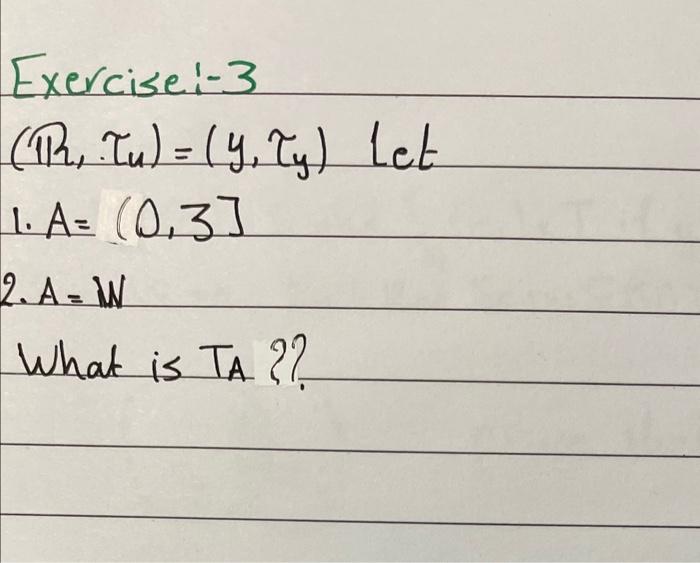 Exercise:-3
(ℝ, τu) = (y, τy) Let
1. A = (0,3]
2. A = W
What is TA ??